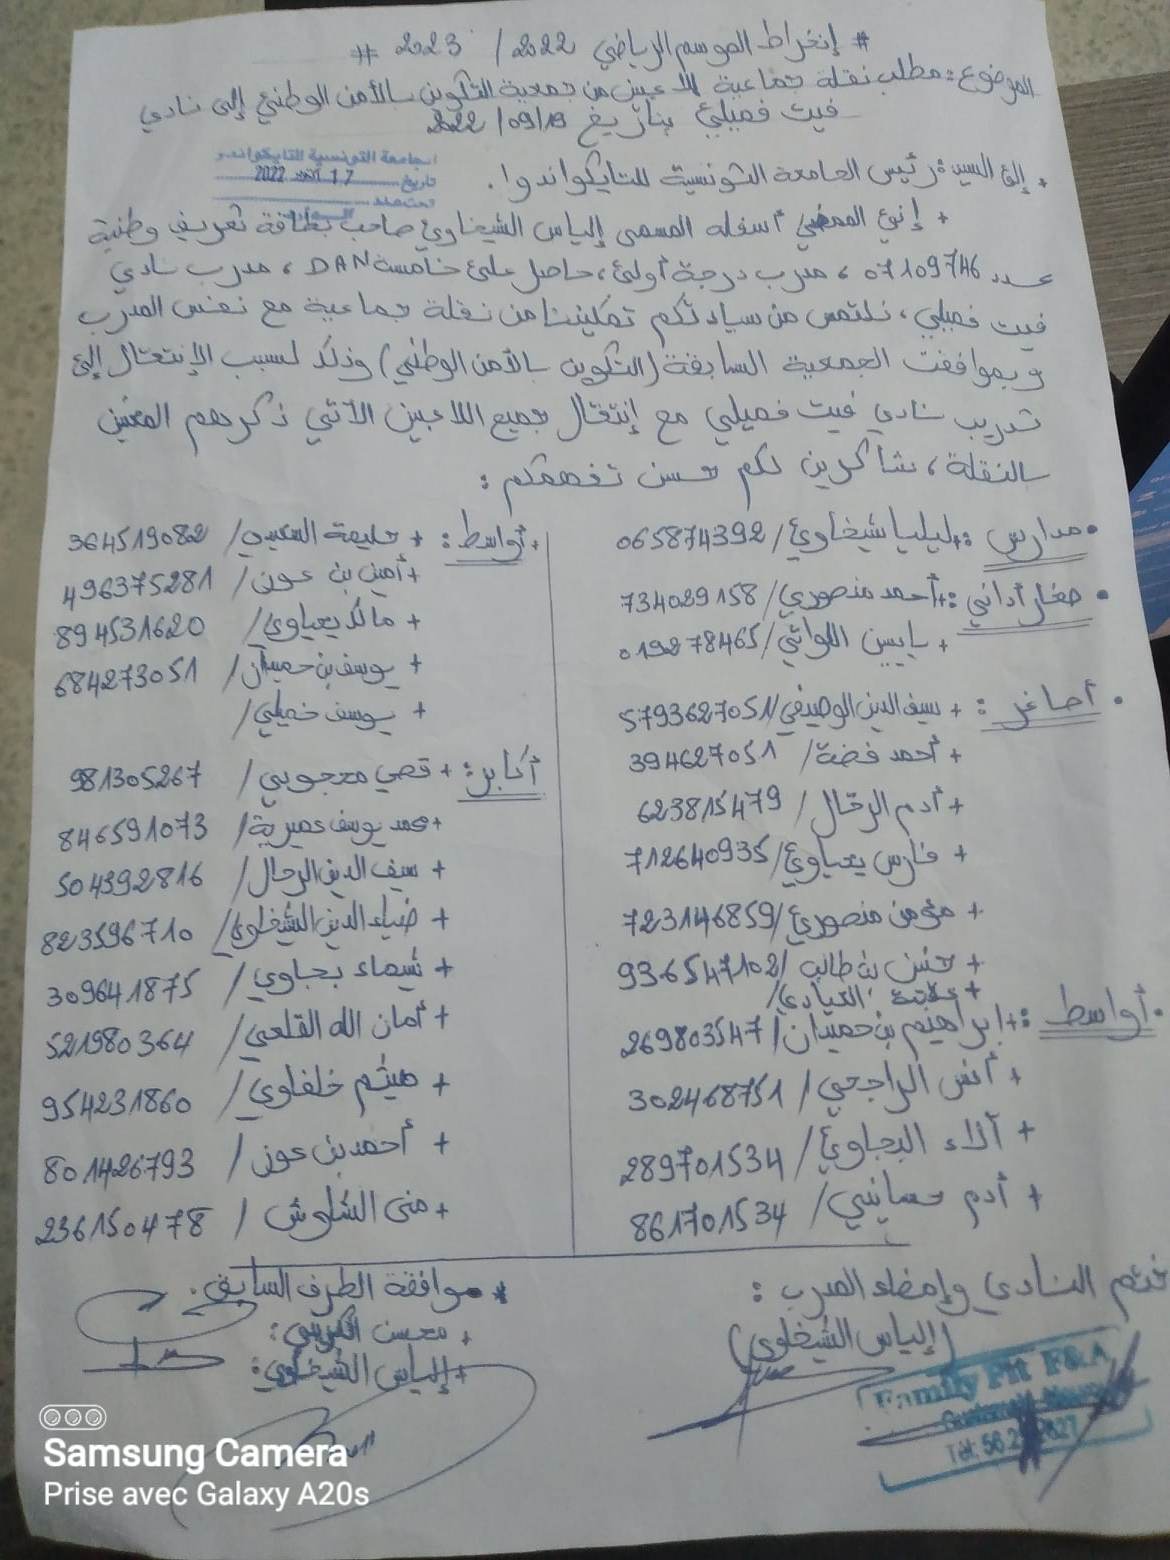 # إنخراط الموسم الرياضي 2022 / 2023 #
الموضوع: مطلب نقلة جماعية للاعبين من جمعية التكوين بالأمن الوطني إلى نادي
فيت فميلي بتاريخ 19/09/2022
الجامعة التونسية للتايكواندو
تاريخ 17 أكتوبر 2022
+ إلى السيد: رئيس الجامعة التونسية للتايكواندوا.
+ إنّي الممضي أسفله المسمى إلياس الشيخاوي صاحب بطاقة تعريف وطنية
عدد 07109746، مدرب درجة أولى، حاصل على خامسة DAN، مدرب نادي
فيت فميلي، نلتمس من سيادتكم تمكيننا من نقلة جماعية مع نفس المدرب
وبموافقت الجمعية السابقة (التكوين بالأمن الوطني) وذلك لسبب الإنتقال إلى
تدريب نادي فيت فميلي مع إنتقال جميع اللاعبين الآتي ذكرهم المعنين
بالنقلة، شاكرين لكم حسن تفهمكم:
• مدارس: + ليليا شيخاوي / 065874392
• صغار أداني: + أحمد منصوري / 734029158
+ يابس اللواتي / 019278465
• أصاغر: + سيف الدين الوصيفي / 5793627051
+ أحمد فضة / 394627051
+ أدم الرحّال / 623815479
+ فارس يحياوي / 712640935
+ مؤمن منصوري / 723146859
+ حسن بن طالب / 936547102
+ العيادي /
• أواسط: + إبراهيم بن حميدان / 269803547
+ أنس الراجحي / 302468751
+ آلاء البجاوي / 289701534
+ أدم حسايني / 861701534
+ أواسط: + حليمة السعيدي / 364519082
+ أمين بن عون / 496375281
+ مالك يحياوي / 894531620
+ يوسف بن حميدان / 684273051
+ يوسف خميلي /
أكابر: + قصي محجوبي / 981305267
+ محمد يوسف عميرية / 846591073
+ سيف الدين الرحال / 504392816
+ ضياء الدين الشيخاوي / 823596710
+ شيماء بجاوي / 309641875
+ أمان الله القلعي / 521980364
+ هيثم خلفاوي / 954231860
+ أحمد بن عون / 801426793
+ منى الشلوش / 236150478
ختم النادي وإمضاء المدرب:
(إلياس الشيخاوي)
Family Fit F&A
* موافقة الطرف السابق.
+ محسن
+ إلياس الشيخاوي:
Samsung Camera
Prise avec Galaxy A20s